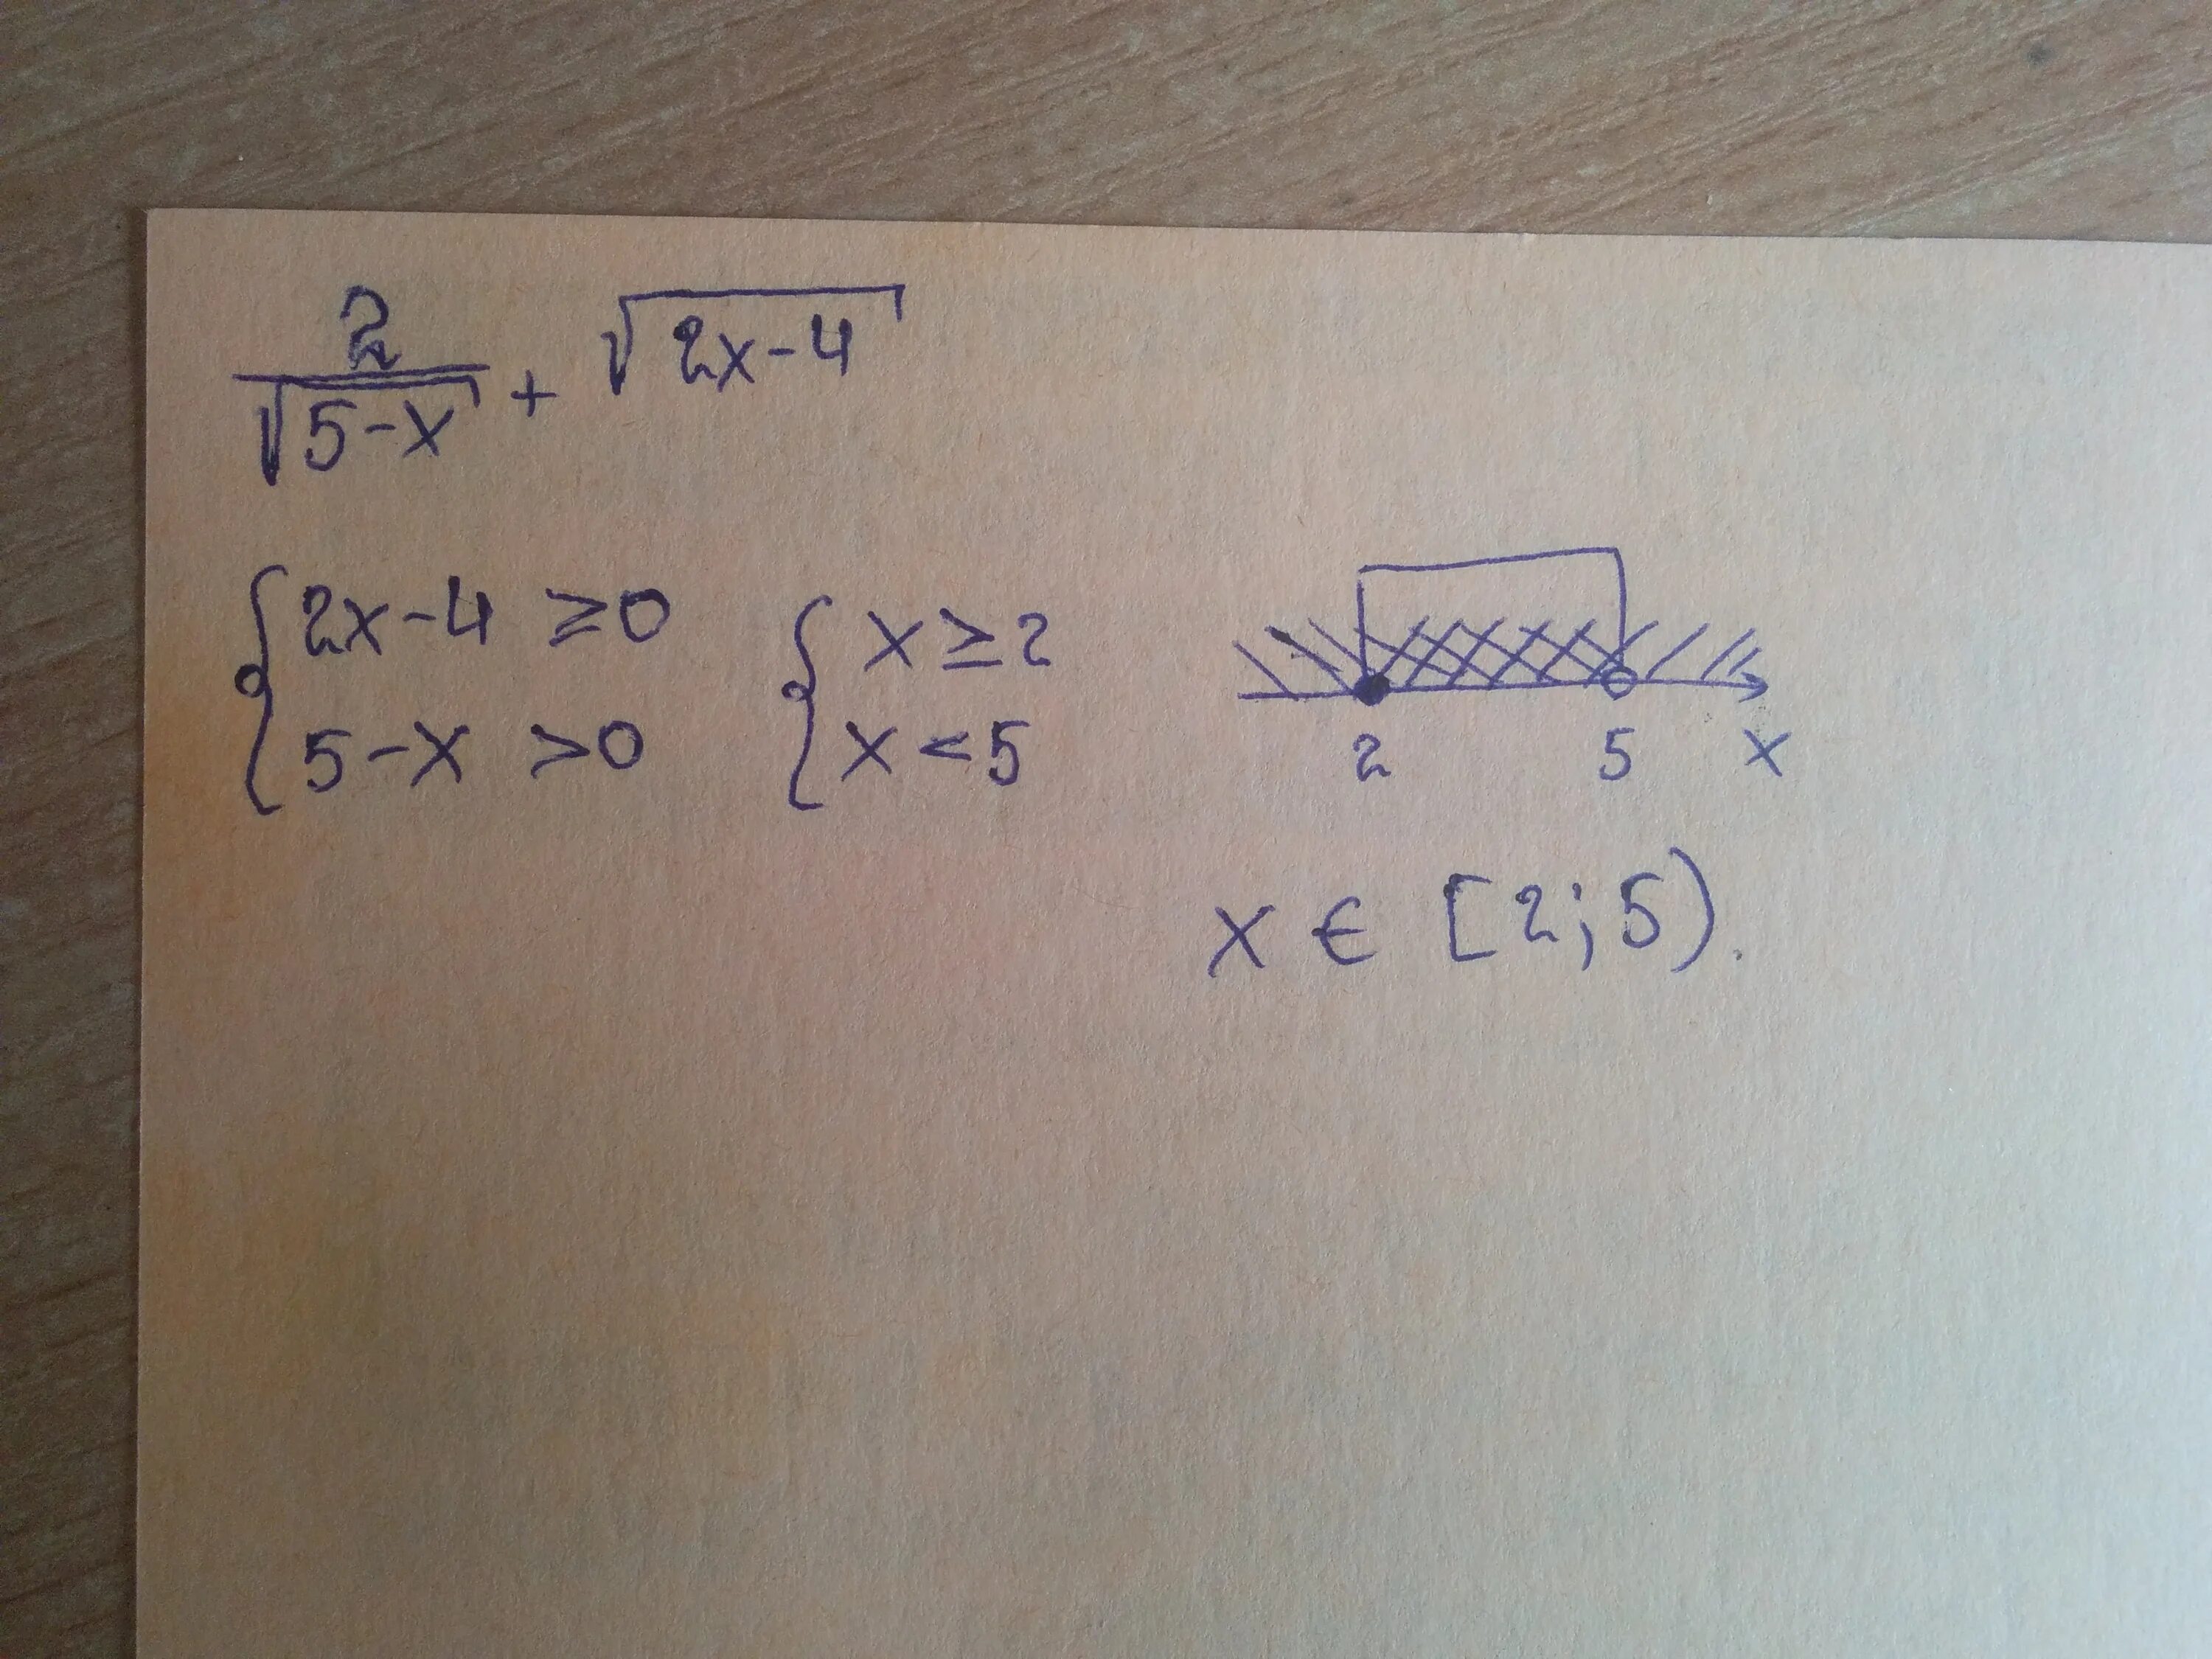 2/√(5-x) + √(2x-4)
{2x-4 ≥0 {x≥2
{5-x >0 {x<5
2 5 x
x ∈ [2;5).